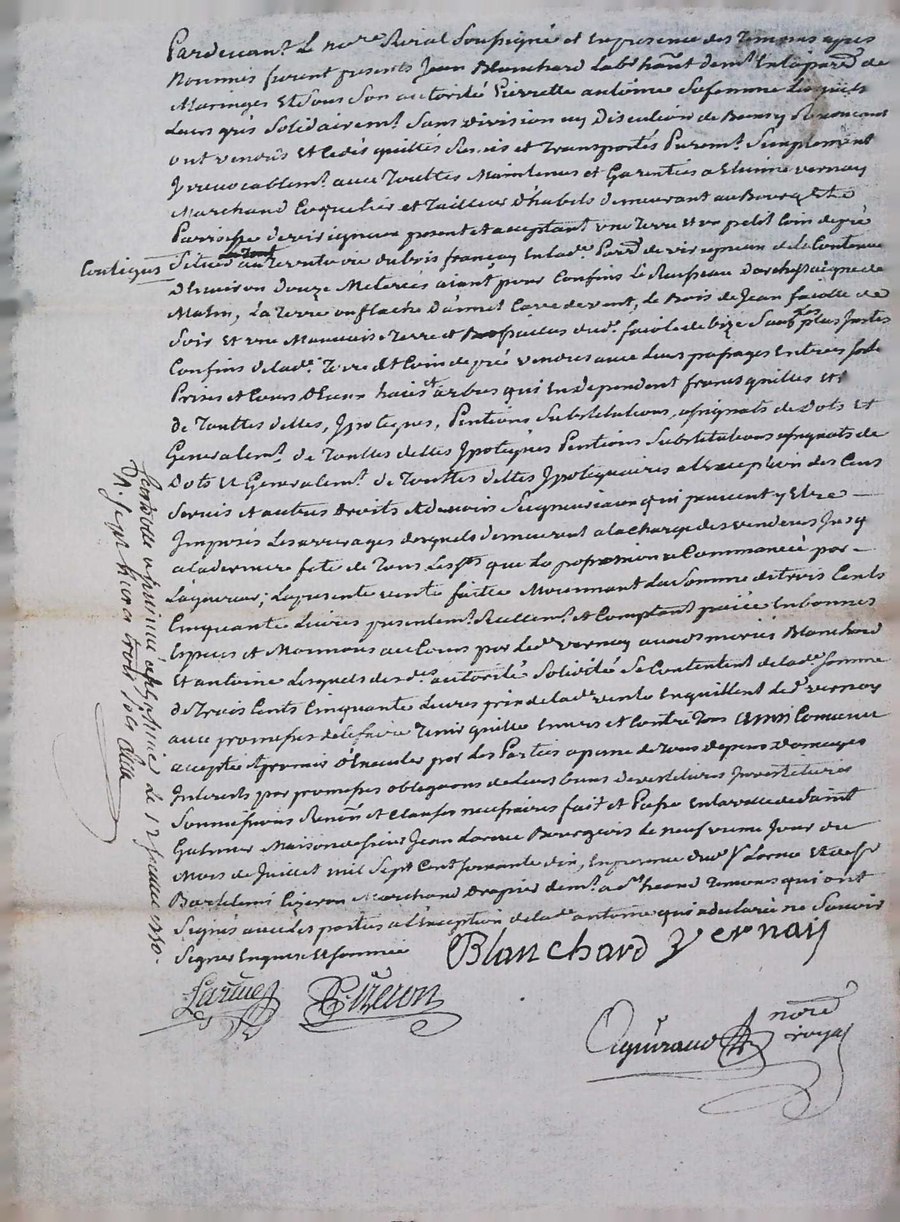 Pardevant Le nore Roial Soussigné et En presence des Temoins apres
Nommes furent presents Jean Blanchard Labr hant demt En la parse de
Maringes Et Sous Son autorité Pierrette antoine Sa femme Lesquels
Leurs grés Solidairemt Sans division ny Discution de Biens y Renoncant
ont vendus Et Cedés quittés Remis et Transportés Puremt Simplement
Jrrevocablemt avec Touttes Maintenues et Garenties a Etienne vernay
Marchand Coquetier et Tailleur D'habits demeurant au Bourg Et
Parroisse de virigneux present et acceptant une Terre et un petit Coin de pré
Contigus Situés au Territoire du bois françois En lade Parse de virigneux de la Contenue
D'Environ Douze Meterées aiant pour Confins Le Ruisseau D'archissaigne de
Matin, La Terre ou flache D'annet Carre de vent, Le Bois de Jean faiolle de
Soir Et une Mauvaise Terre et dud. faiole de bize Sauf Les plus Justes
Confins de lade Terre Et Coin de pré vendus avec Leurs passages Entrées Sorties
Prises et Cours d'Eaux haies et arbres qui En dependent francs quittes Et
de Touttes dettes, Jpoteques, Pentions Substitutions, assignats de Dots Et
Generalemt de Touttes dettes Jpoteques Pentions Substitutions assignats de
Dots Et Generalemt de Touttes dettes Jpotequaires a L'Exception des Cens
Servis et autres Droits Et devoirs Seigneuriaux qui peuvent y Etre
Jmposés Les arrerages desquels demeurent a la Charge des vendeurs Jusq
a la derniere fete de Tous Les Sts que La possession a Commancée por
L'aquereur, La presente vente faitte Moiennant La Somme de trois Cents
Cinquante Livres presentemt Reellemt et Comptant paiée En bonnes
Especes et Monnoies au Cours par Led. vernay auxds mariés Blanchard
Et antoine Lesquels des ds autorité Solidité Se Contentent de lade Somme
de Trois Cents Cinquante Livres prix de lade vente En quittent Led. vernay
avec promesses de le faire Tenir quitte Envers et Contre Tous ainsi Convenu
accepté promis D'Executer par Les Parties a peine de Tous depens Domages
Interets par promesses obligaons de Leurs biens devestitures Jnvestitures
Soumissions Renons et Clauses necessaires fait et Passé En la ville de Saint
Galmier Maison de Sieur Jean Larüe Bourgeois Le neuf vieme Jour du
Mois de Juillet mil Sept Cent Soixante dix, En presence dud. Sr Larue Et de Sr
Bartelemi Cizeron Marchand Drapier demt aud. St heand Temoins qui ont
Signés avec Les parties a L'Exception de lade antoine qui a declaré ne Savoir
Signer Enquise Et Sommée Blanchard Vernaÿ
Larüe Cizeron
nore royal